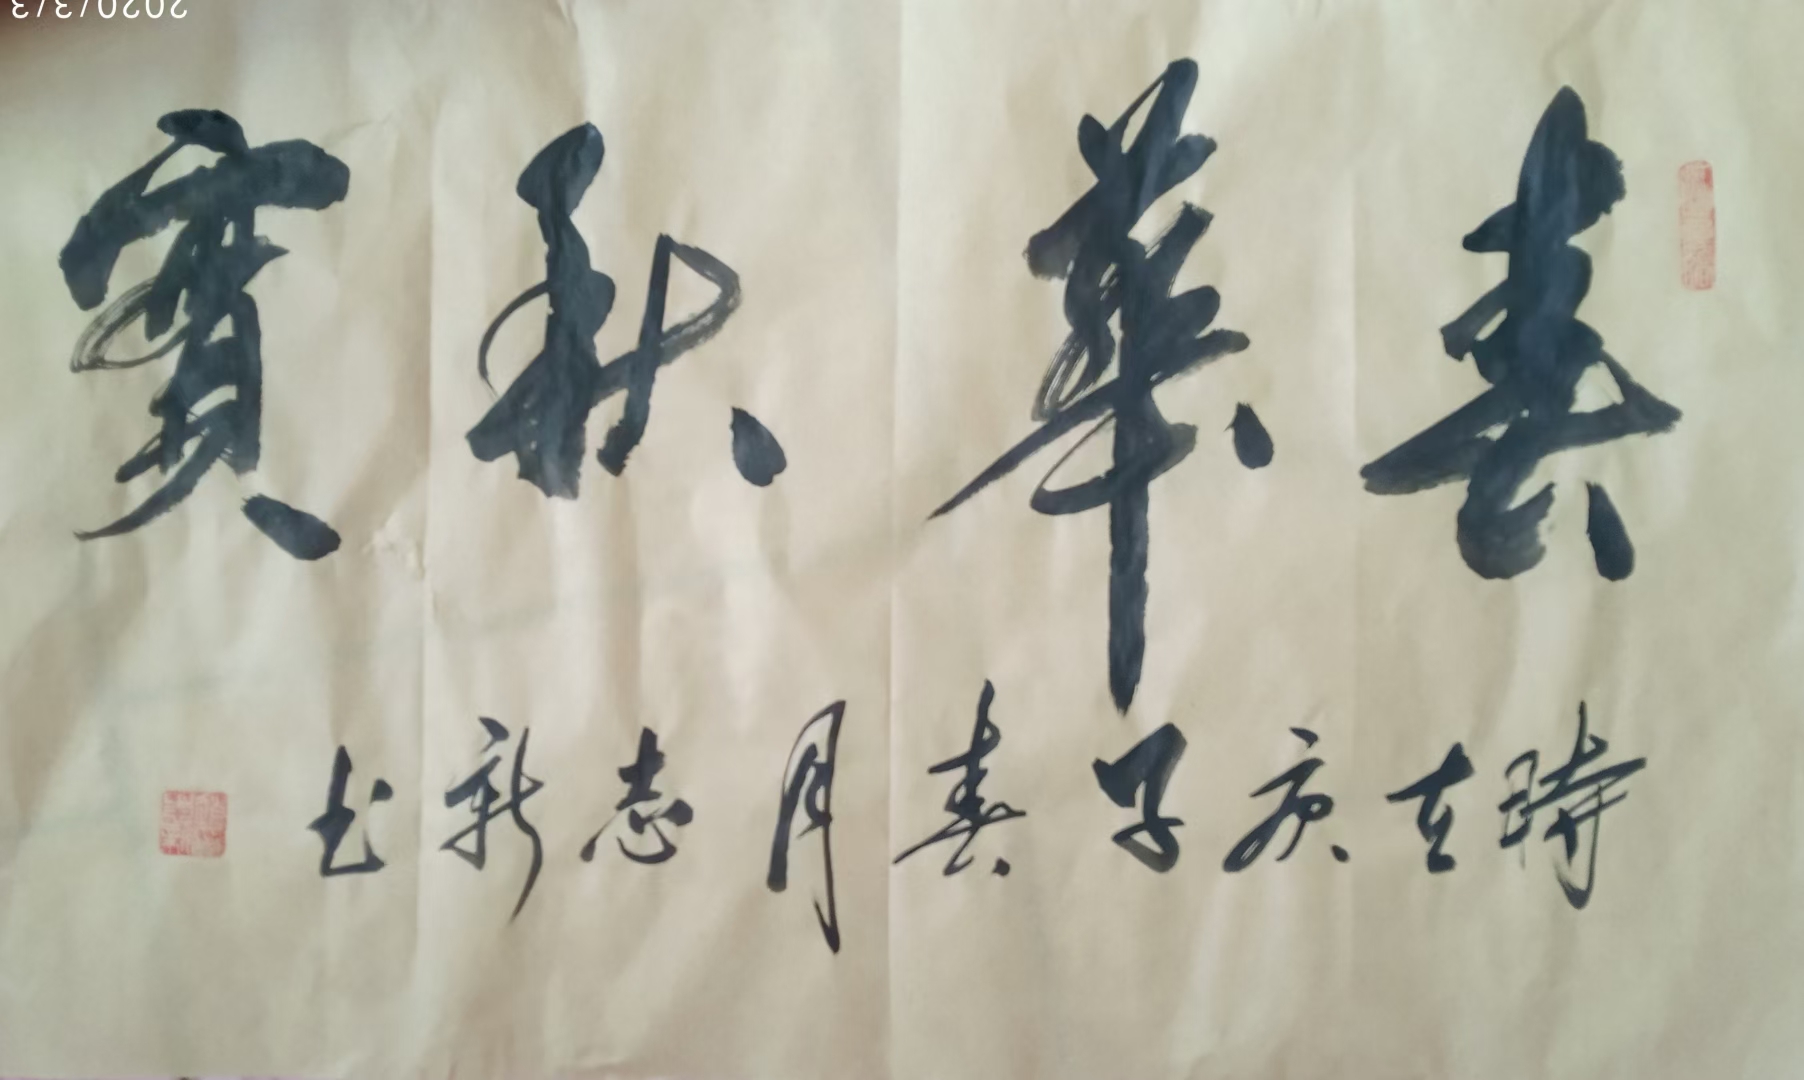 春華秋實
時在庚子春月志新书
2020/3/3